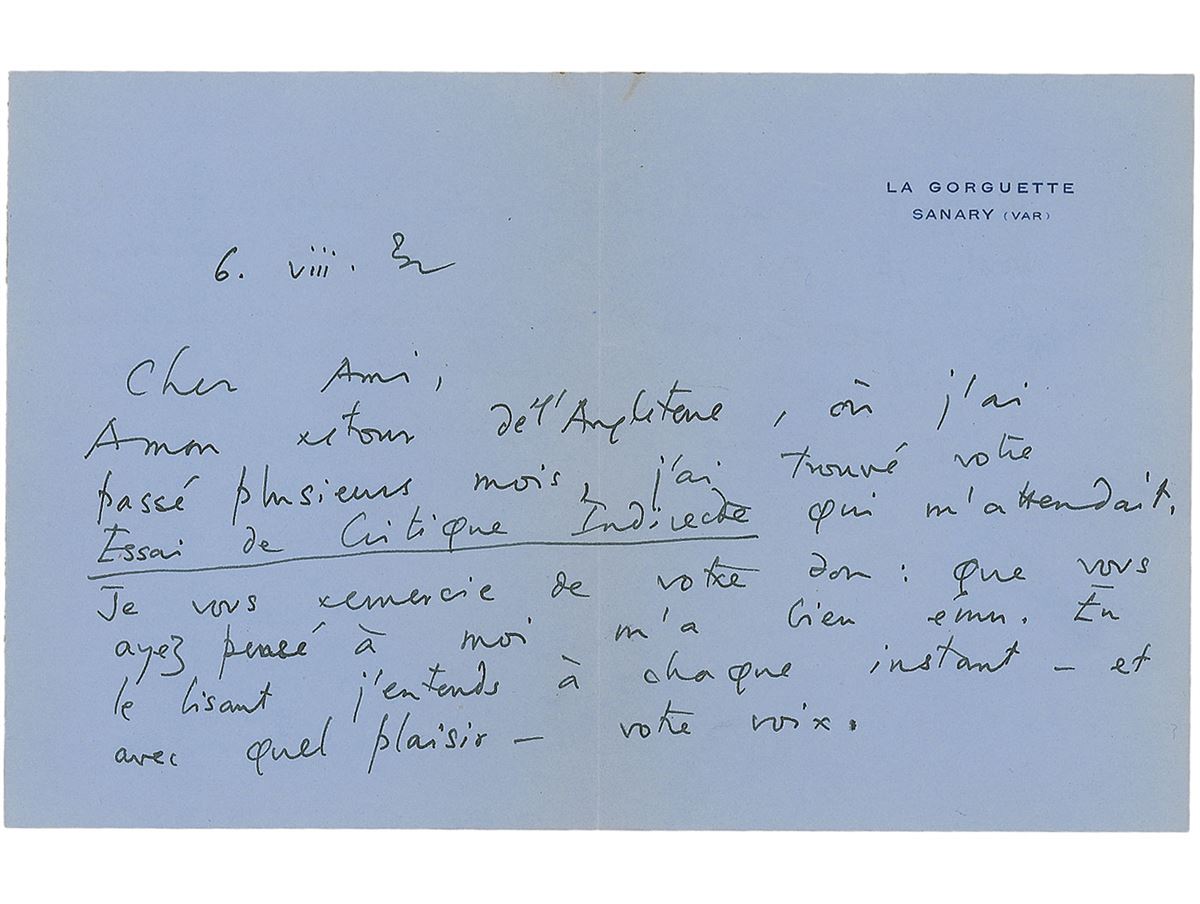 LA GORGUETTE
SANARY (VAR)
6. viii. 32
Cher Ami,
A mon retour de l'Angleterre, où j'ai
passé plusieurs mois, j'ai trouvé votre
Essai de Critique Indirecte qui m'attendait.
Je vous remercie de votre don: que vous
ayez pensé à moi m'a bien ému. En
le lisant j'entends à chaque instant – et
avec quel plaisir – votre voix.